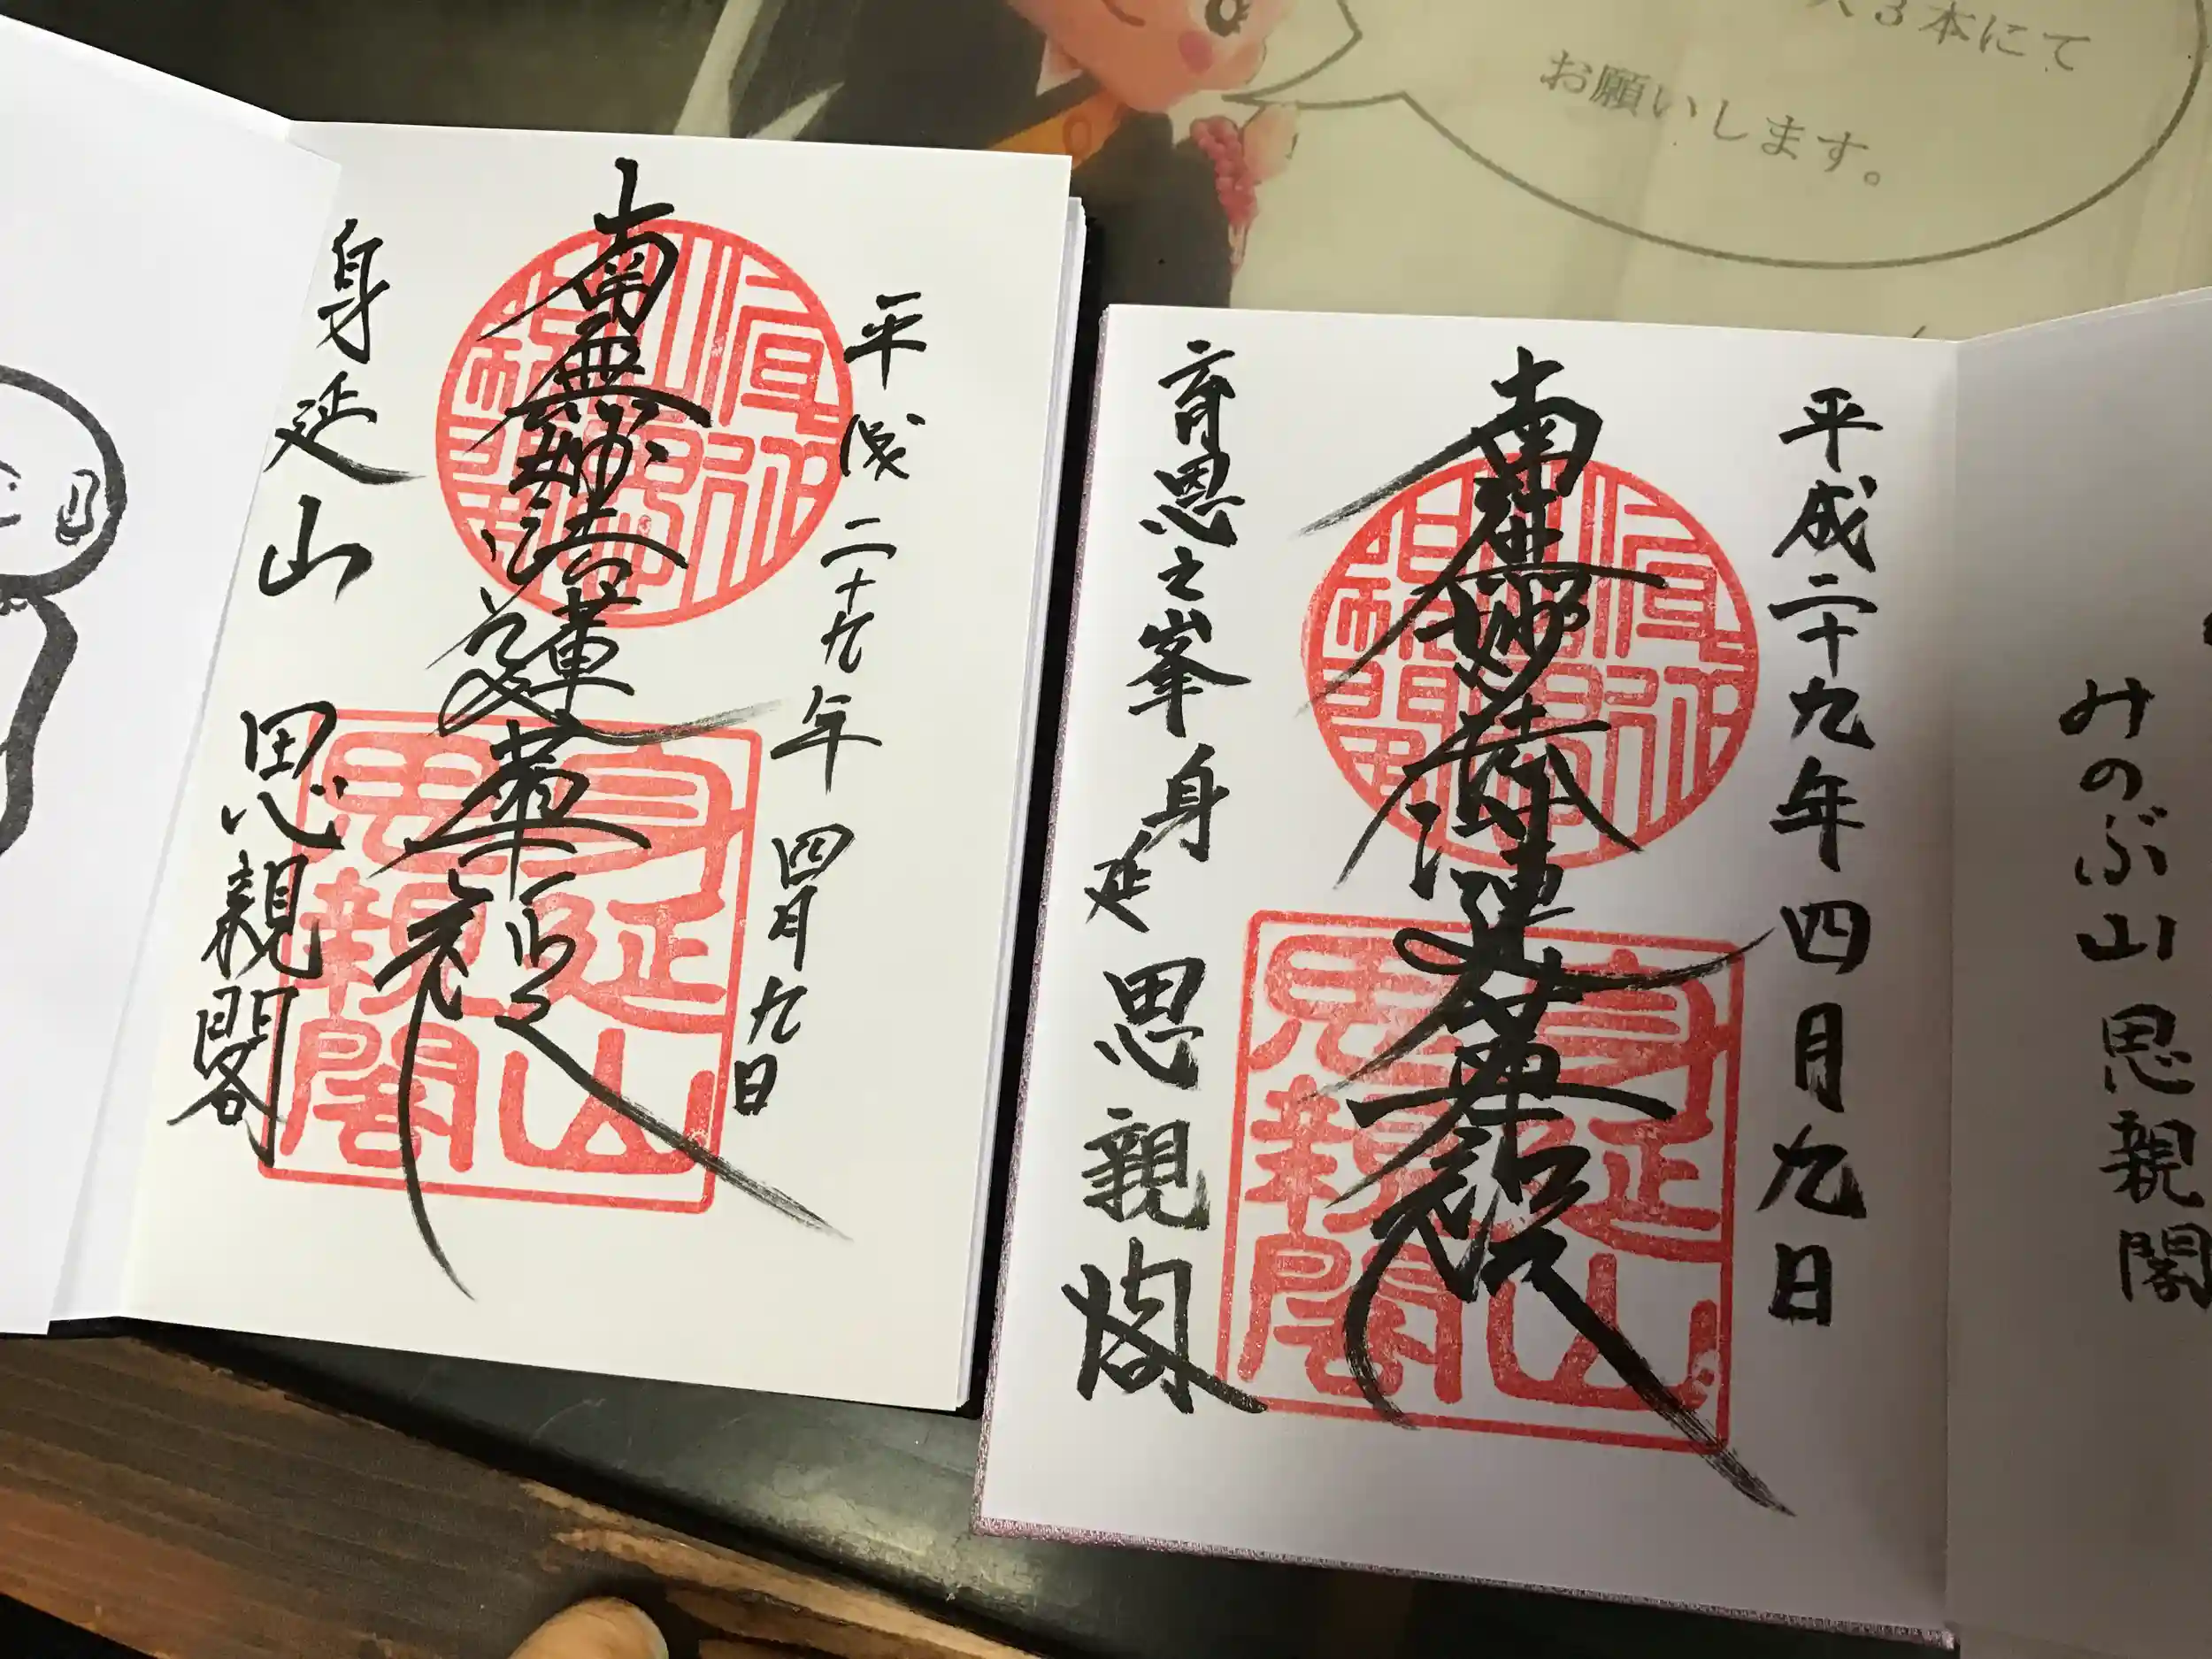 ス3本にて
お願いします。
平成二十九年四月九日
南無妙法蓮華経
身延山 思親閣
身延山
思親閣
みのぶ山 思親閣
平成二十九年四月九日
南無妙法蓮華経
育恩之峯 身延 思親閣
身延山
思親閣